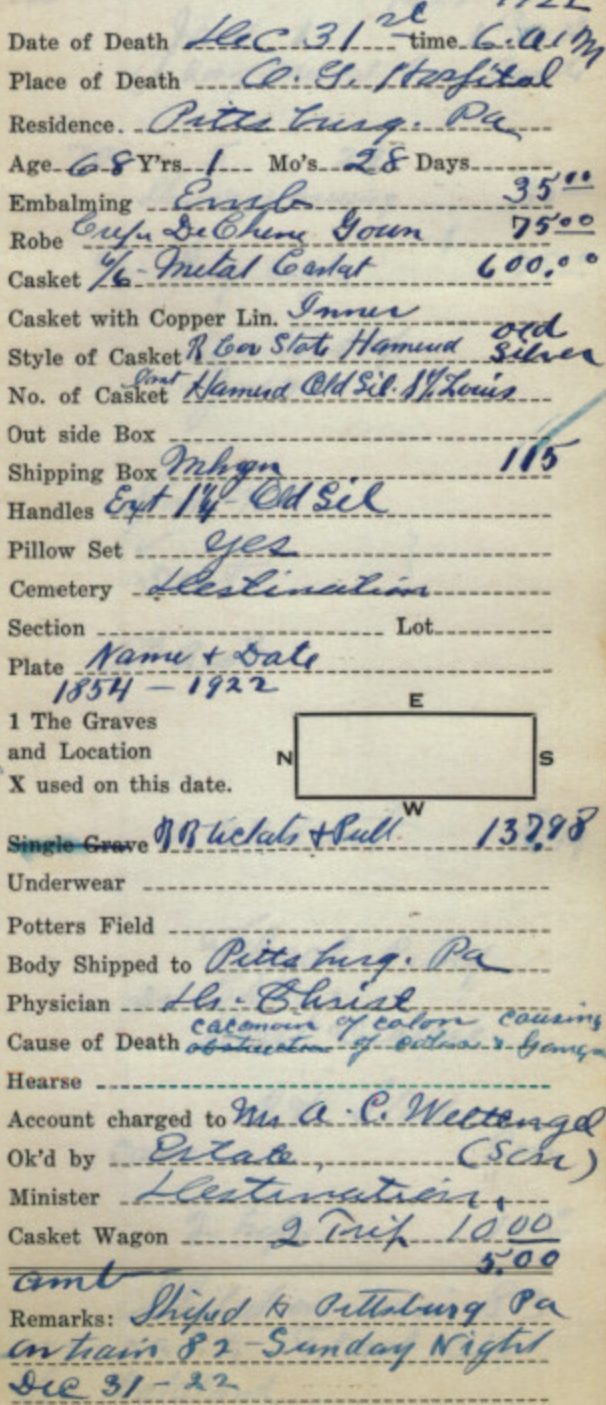 1922
Date of Death Dec 31st time 6. A M
Place of Death O. G. Hospital
Residence. Pittsburg. Pa
Age 68 Y'rs 1 Mo's 28 Days
Embalming Emb 35.00
Robe Crepe De Chene Goun 75.00
Casket 6/6 - Metal Casket 600.00
Casket with Copper Lin. Inner
Style of Casket State Hamerd old Silver
No. of Casket Hamerd Old Sil. St. Louis
Out side Box
Shipping Box Mhgn 115
Handles Ext 1¼ - Old Sil
Pillow Set yes
Cemetery Destination
Section Lot
Plate Name + Date
1854 - 1922
E
1 The Graves
and Location
N S
X used on this date.
W
Single Grave R R tickets + Pull. 137.98
Underwear
Potters Field
Body Shipped to Pittsburg. Pa
Physician Dr. Christ
Cause of Death of colon causing
obstruction of colon &
Hearse
Account charged to Mr A. C. Wettengel
Ok'd by Estate, (Son)
Minister Destination,
Casket Wagon 2 Trip 10.00
5.00
amb
Remarks: Shiped to Pittsburg Pa
on train 82 - Sunday Night
Dec 31 - 22